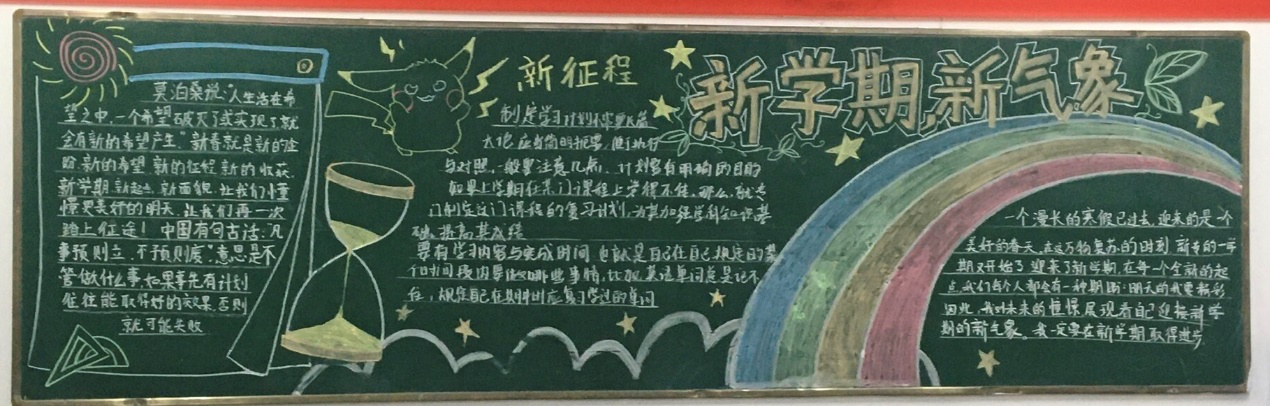 莫泊桑说:"人生活在希
望之中,一个希望破灭了或实现了就
会有新的希望产生"新春就是新的征
新的希望 新的征程 新的收获
新学期 新起点 新面貌 让我们憧
憬更美好的明天,让我们再一次
踏上征途!中国有句古话:凡
事预则立,不予预则废,意思是不
管做什么事,如果事先有计划
往往能取得好的效果,否则
就可能失败
新征程
制定学习计划不需要长篇
大论,应当简明扼要,便于执行
与对照,一般要注意几点,计划要有明确的目的
如果上学期在某门课程上学得不佳,那么,就专
门制定这门课程的复习计划,为其加强学科知识基
础,提高其成绩
要有学习内容与完成时间 也就是自己在自己规定的某
个时间段内要做哪些事情,比如,英语单词总是记不
住,规定自己在期中时应复习学过的单词
新学期,新气象
一个漫长的寒假已过去,迎来的是一个
美好的春天,在这万物复苏的时刻 新的一年
期又开始了 迎来了新学期,在每一个全新的起
点,我们每个人都会有一种期盼:明天的我更精彩
因此,我对未来的憧憬展现着自己迎接新学
期的新气象。我一定要在新学期取得进步